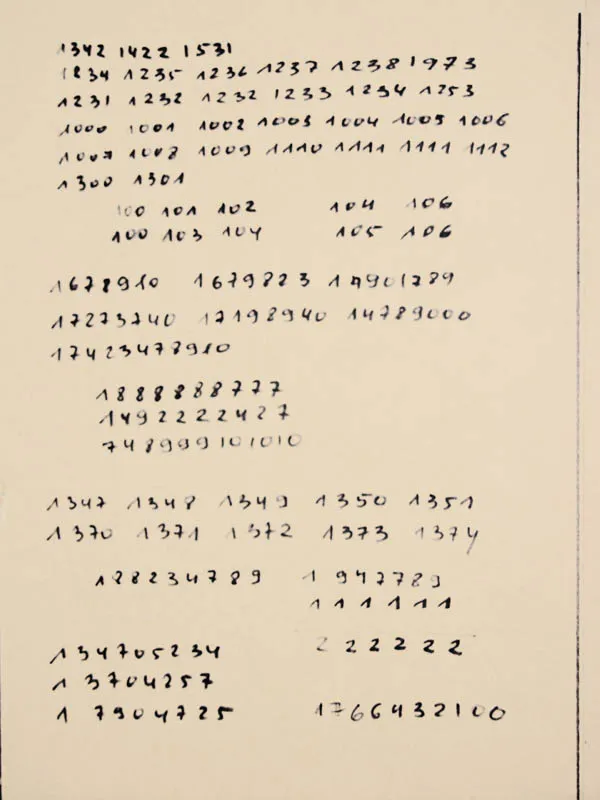 1342 1422 1531
1234 1235 1236 1237 1238 1973
1231 1232 1232 1233 1234 1253
1000 1001 1002 1003 1004 1005 1006
1007 1008 1009 1110 1111 1111 1112
1300 1301
100 101 102 104 106
100 103 104 105 106
1678910 1679823 17901789
17273740 17198940 14789000
17423478910
1888888777
1492222427
748999101010
1347 1348 1349 1350 1351
1370 1371 1372 1373 1374
188234789 1 947789
1 1 1 1 1 1
134705234 2 2 2 2 2 2
1 3704257
1 7904725 1766432100